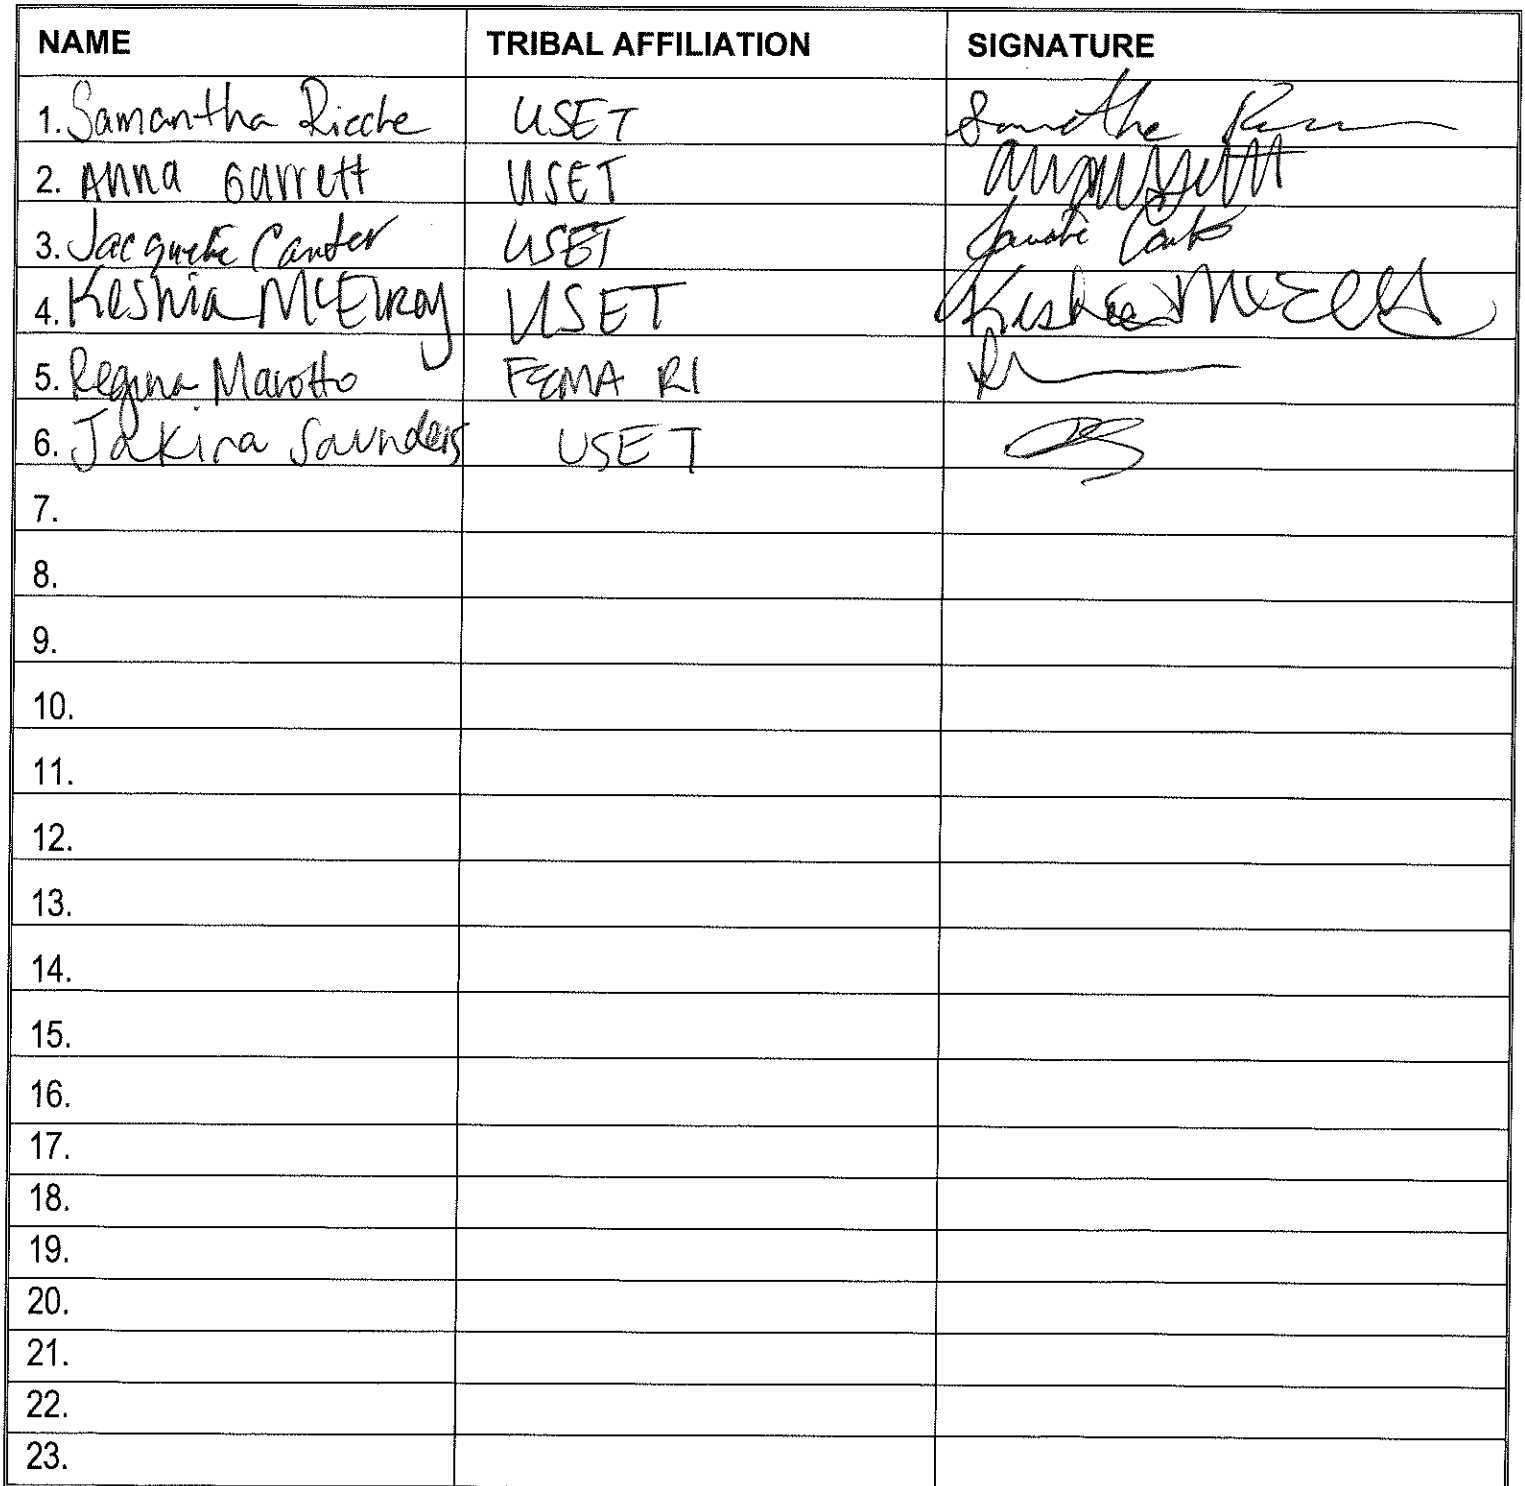 NAME TRIBAL AFFILIATION SIGNATURE
1. Samantha Ricche USET Samantha
2. Anna Garrett USET
3. Jacquelie Canter USET
4. Keshia McElroy USET Keshia McElroy
5. Regina Marotto FEMA RI
6. Jakira Saunders USET
7.
8.
9.
10.
11.
12.
13.
14.
15.
16.
17.
18.
19.
20.
21.
22.
23.